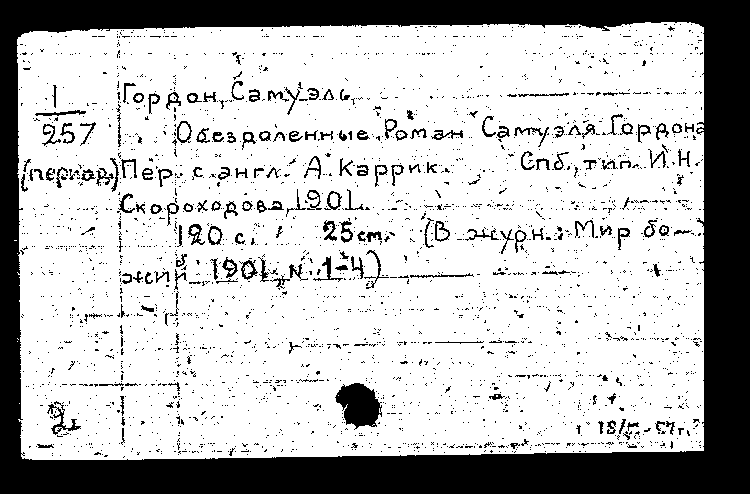 1
257
(период)
Гордон, Самуэль.
Обездоленные. Роман Самуэля Гордона
Пер. с англ. А. Каррик. Спб., тип. И.Н.
Скороходова, 1901.
120 с. 25 см. (В журн.: Мир бо-
жий 1901, N. 1-4)
2